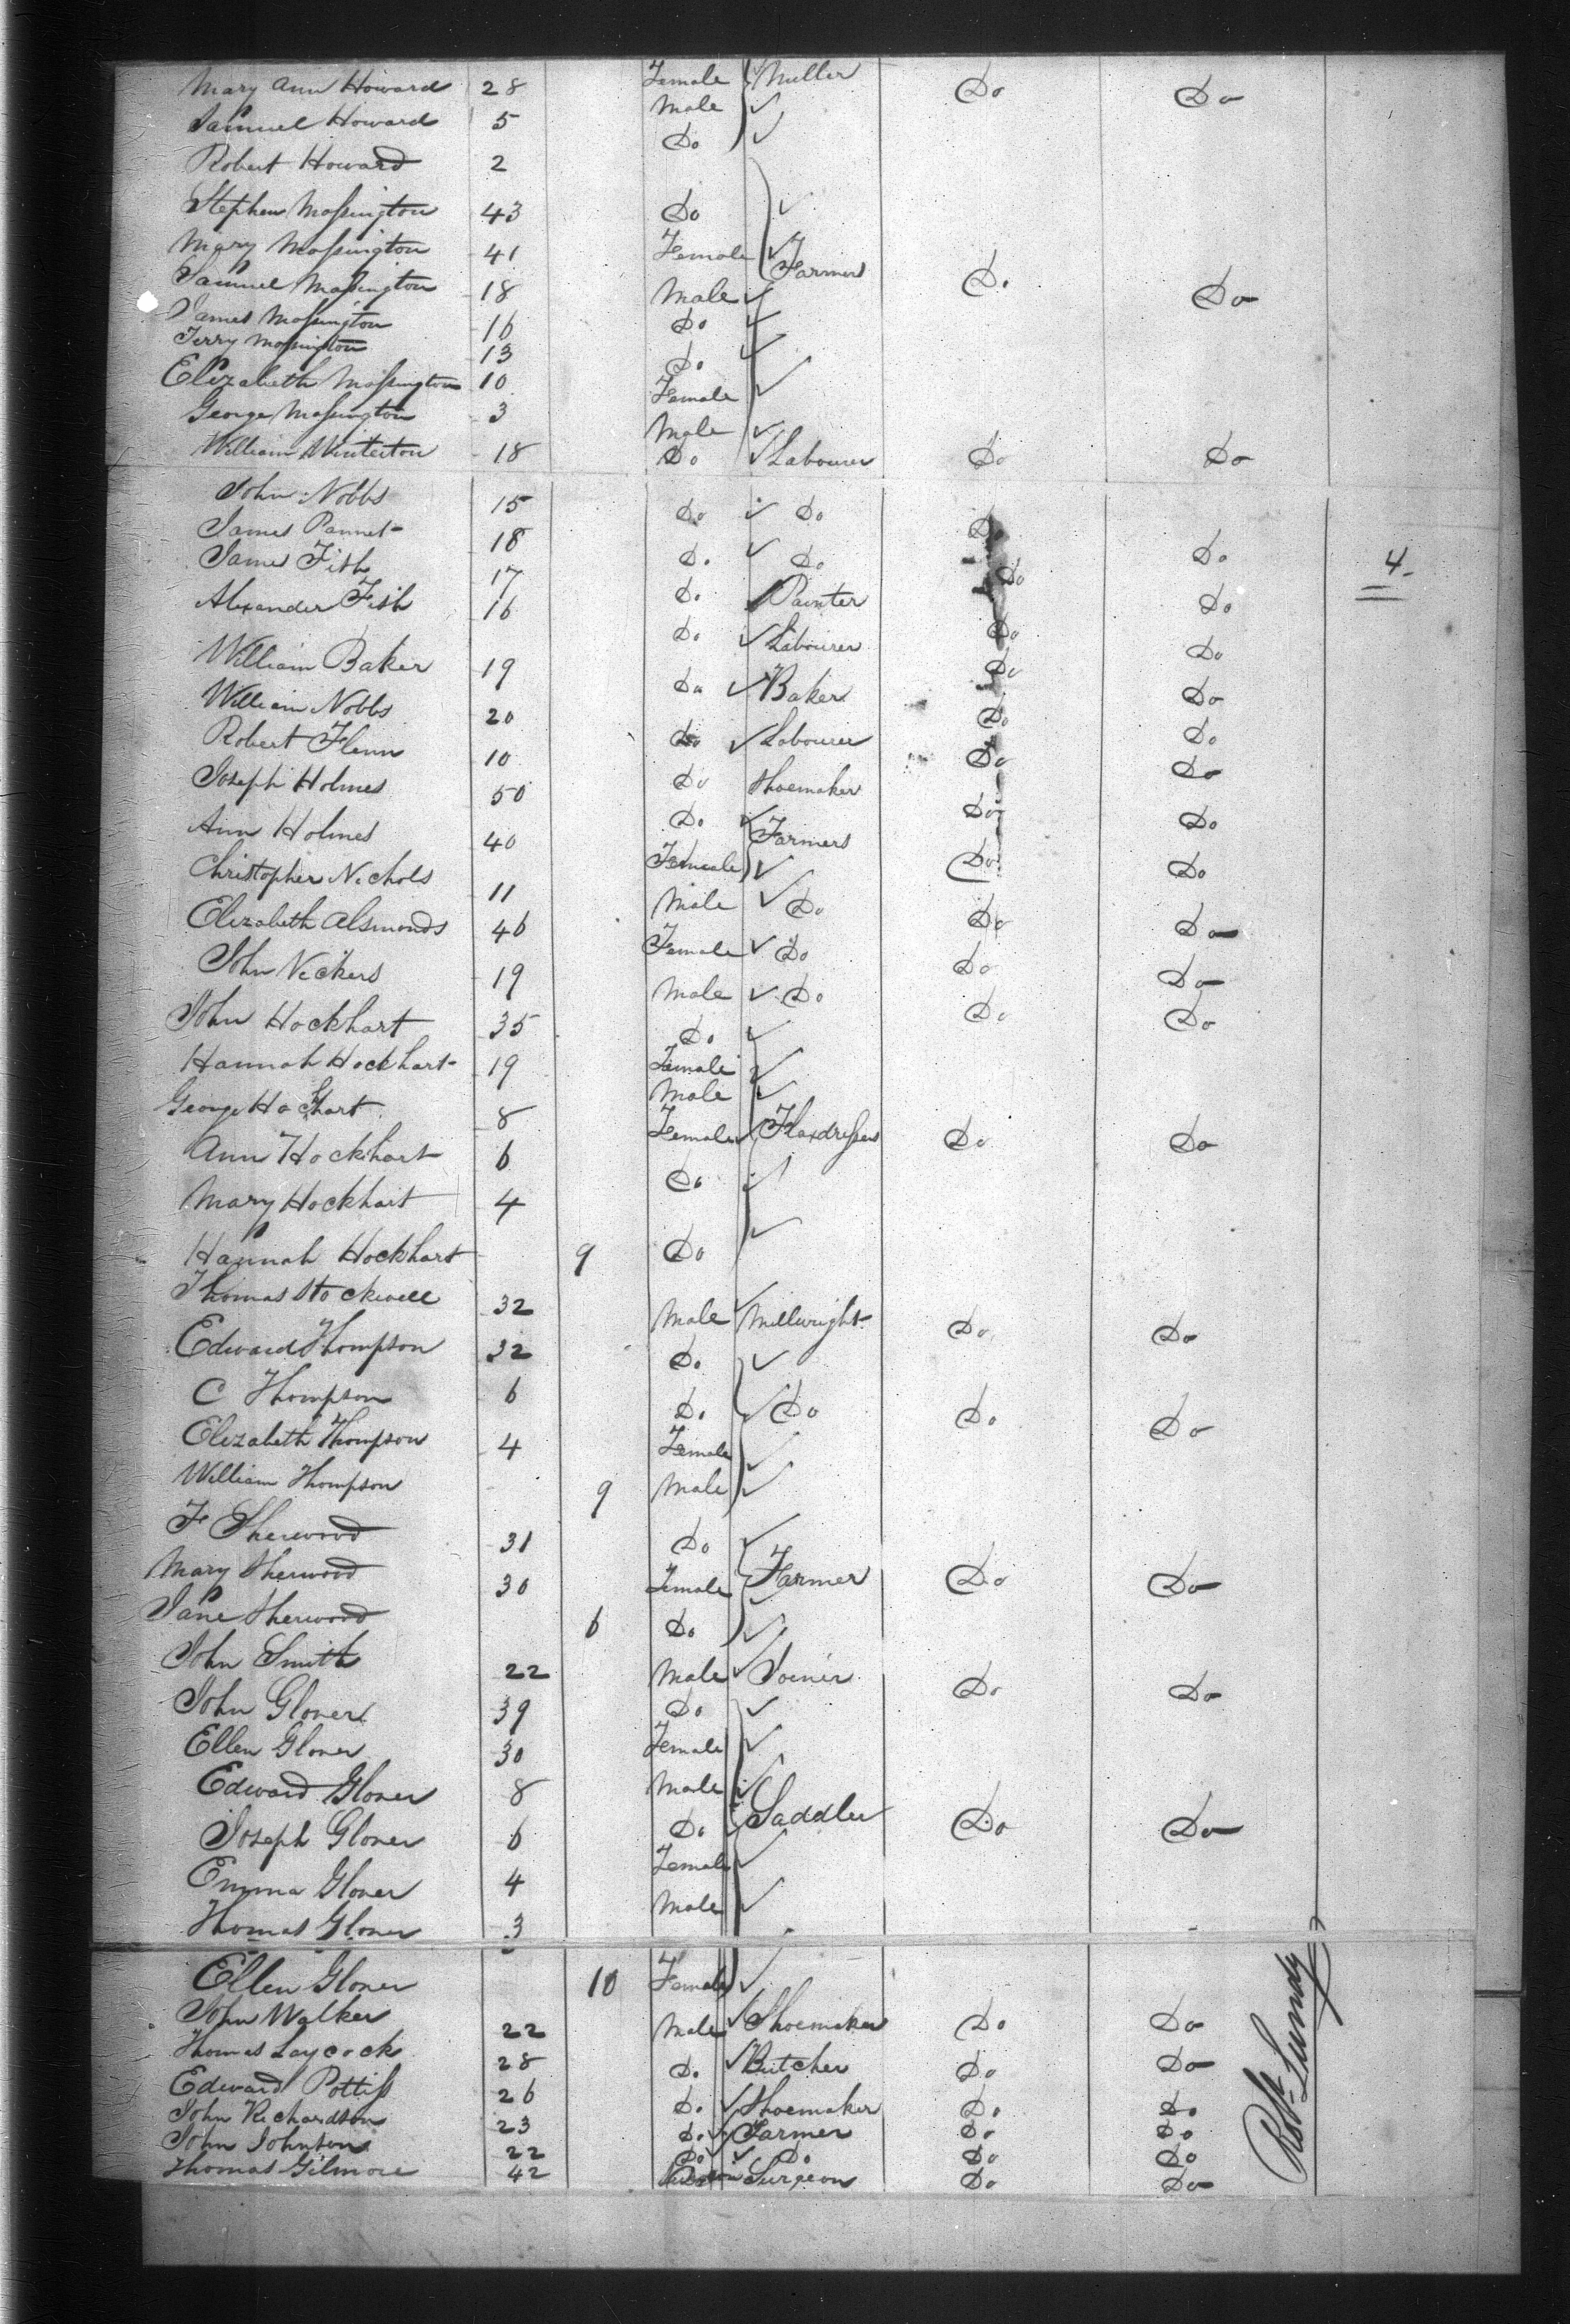 Mary Ann Howard 28 Female Miller Do Do
Samuel Howard 5 Male
Robert Howard 2 Do
Stephen Mossington 43 Do
Mary Mossington 41 Female Farmers Do Do
Samuel Mossington 18 Male
James Mossington 16 Do
Jerry Mossington 13 Do
Elizabeth Mossington 10 Female
George Mossington 3 Male
William Winterton 18 Do Labourer Do Do
John Nobbs 15 Do Do Do Do
James Pannet 18 Do Do Do Do
James Fish 17 Do Painter Do Do
4
Alexander Fish 16 Do Labourer Do Do
William Baker 19 Do Baker Do Do
William Nobbs 20 Do Labourer Do Do
Robert Flenn 10 Do Shoemaker Do Do
Joseph Holmes 50 Do Farmers Do Do
Ann Holmes 40 Female
Christopher Nichols 11 Male Do Do Do
Elizabeth Alsmonds 46 Female Do Do Do
John Vickers 19 Male Do Do Do
John Hockhart 35 Do
Hannah Hockhart 19 Female
George Hockhart 8 Male
Ann Hockhart 6 Female Flaxdressers Do Do
Mary Hockhart 4 Do
Hannah Hockhart 9 Do
Thomas Stockwell 32 Male Millwright Do Do
Edward Thompson 32 Do
C Thompson 6 Do Do Do Do
Elizabeth Thompson 4 Female
William Thompson 9 Male
F Sherwood 31 Do
Mary Sherwood 30 Female Farmer Do Do
Jane Sherwood 6 Do
John Smith 22 Male Joiner Do Do
John Glover 39 Do
Ellen Glover 30 Female
Edward Glover 8 Male
Joseph Glover 6 Do Saddler Do Do
Emma Glover 4 Female
Thomas Glover 3 Male
Ellen Glover 10 Female
John Walker 22 Male Shoemaker Do Do
Thomas Laycock 28 Do Butcher Do Do
Edward Pottiss 26 Do Shoemaker Do Do
John Richardson 23 Do Farmer Do Do
John Johnson 22 Do Do Do Do
Thomas Gilmore 42 Surgeon Do Do
Robt Lundy